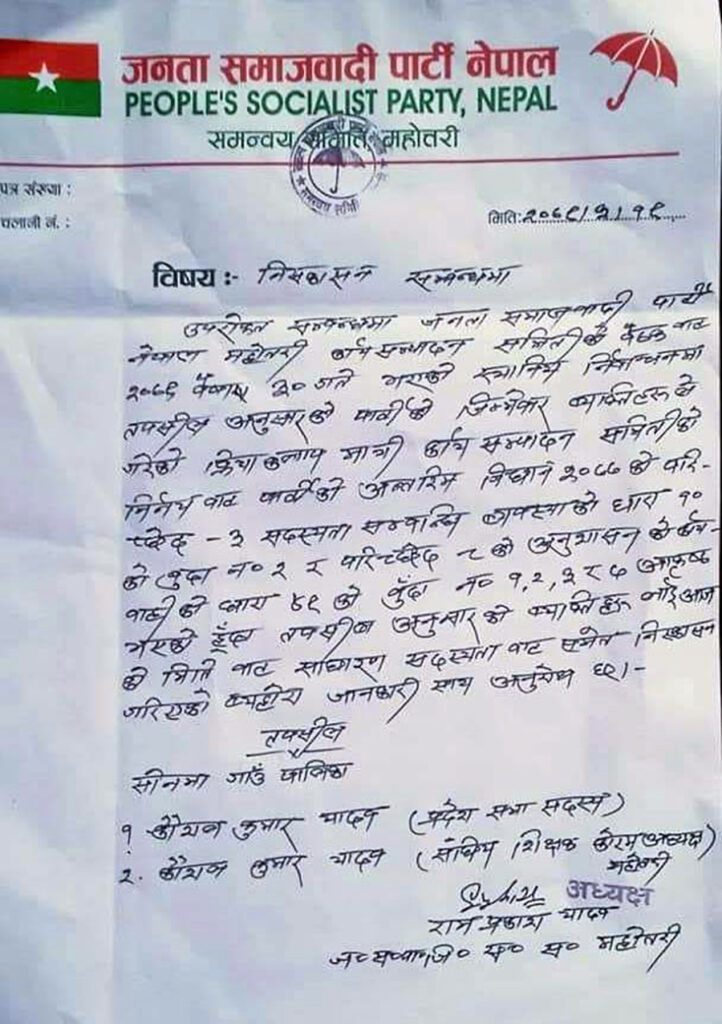 जनता समाजवादी पार्टी नेपाल
PEOPLE'S SOCIALIST PARTY, NEPAL
समन्वय समिति महोत्तरी
पत्र संख्या :
चलानी नं. :
मिति:२०७९।२।१९
विषय :- निस्कासन सम्बन्धमा
उपरोक्त सम्बन्धमा जनता समाजवादी पार्टी
नेपाल महोत्तरी कार्यसम्पादन समितीको बैठक बाट
२०७९ बैशाख ३० गते भएको स्थानिय निर्वाचनमा
तपसील अनुसारको पार्टीको जिम्मेवार व्यक्तिहरुले
गरेको क्रियाकलाप माथी कार्य सम्पादन समितीको
निर्णय बाट पार्टीको अन्तरिम विधान २०७७ को परि-
च्छेद - ३ सदस्यता सम्बन्धि व्यवस्थाको धारा १०
को बुंदा न० २ र परिच्छेद ८ को अनुशासन को कार्य-
वाही को धारा ४९ को बुँदा न० १,२,३ र ७ आकृष्ठ
भएको हुँदा तपसील अनुसार को व्यक्तिहरु लाई आज
को मिति बाट साधारण सदस्यता बाट समेत निस्कासन
गरिएको व्यहोरा जानकारी साथ अनुरोध छ।-
तपसील
सोनमा गाउँ पालिका
१ कौशल कुमार यादव (प्रदेश सभा सदस्य)
२. कौशल कुमार यादव (संघिय शिक्षक फोरम अध्यक्ष)
महोत्तरी
अध्यक्ष
राम प्रकाश यादव
ज०स०पा०जि० स० स० महोत्तरी